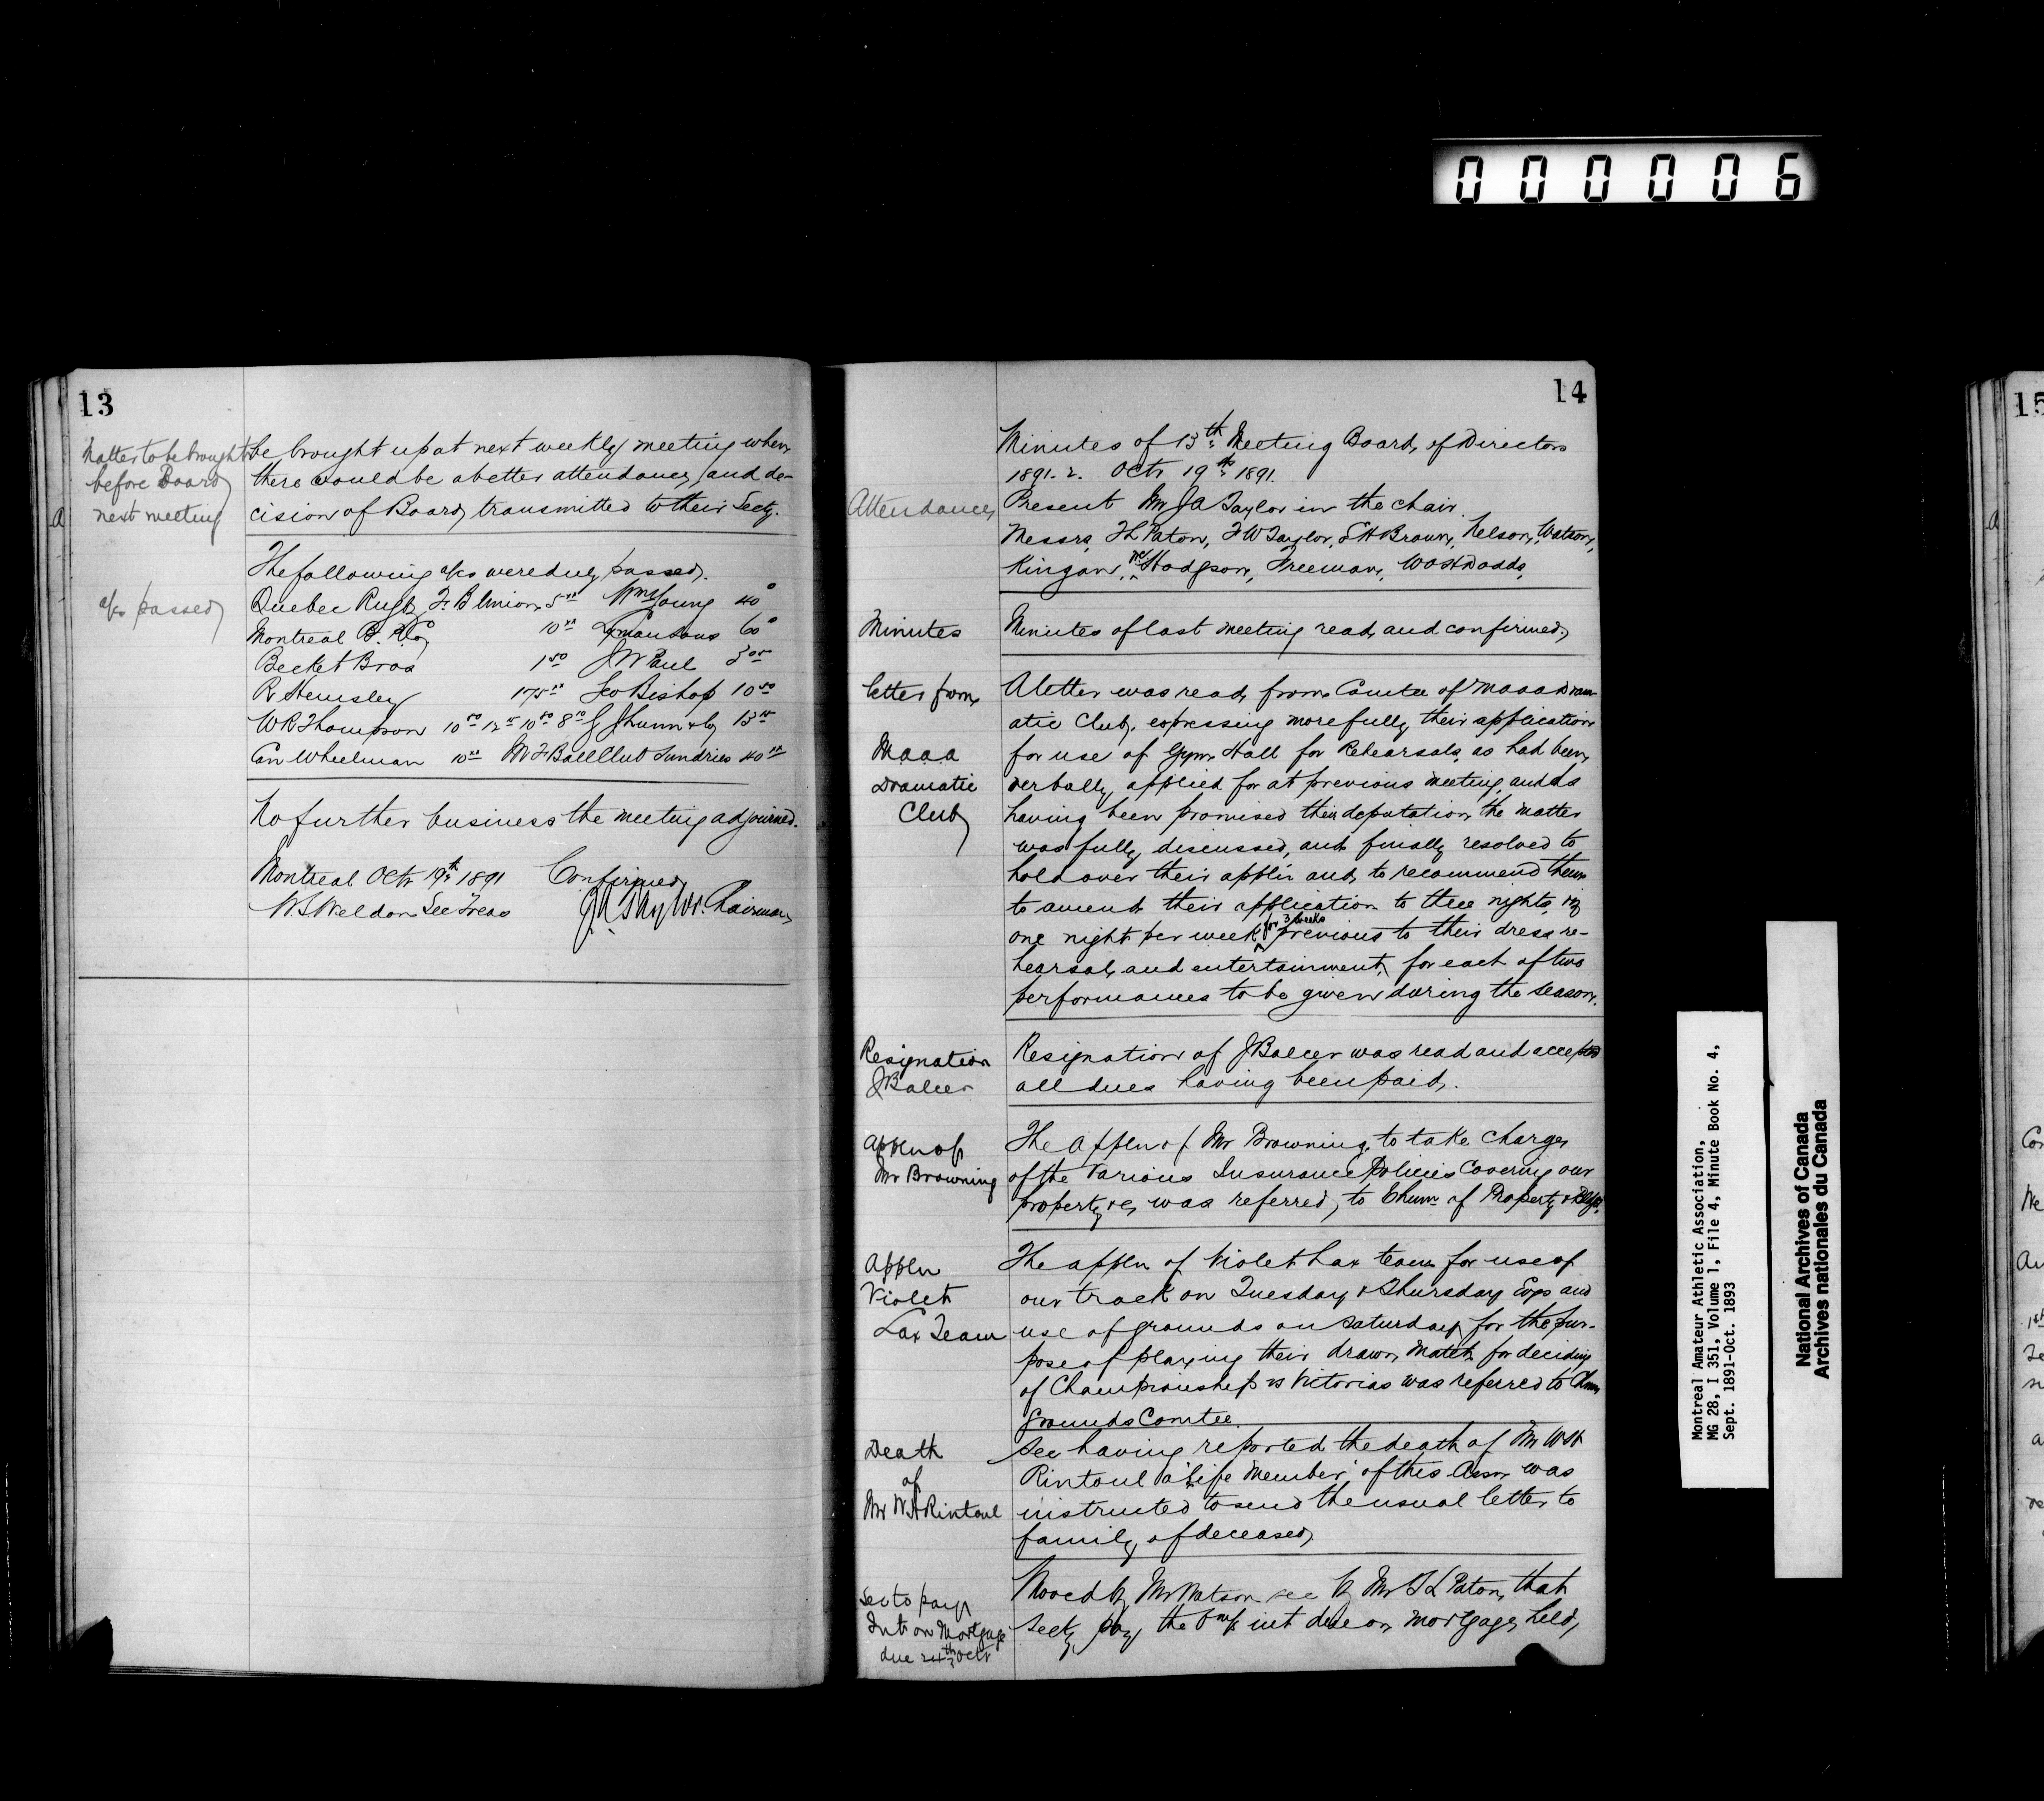 000006
13
Matter to be brought
before Board
next meeting
be brought up at next weekly meeting when
there would be a better attendance, and de-
cision of Board transmitted to their Secty.
a/cs passed
The following a/cs were duly passed.
Quebec Rugby F. B Union 5 Wm Young 40
Montreal B. R. Co 10 60
Becket Bros 1 50 J W Paul 3 05
R Hemsley 175 Geo Bishop 10 50
W R Thompson 10 50 12 10 50 8 J Lunn & Co 13
Can Wheelman 10 M F Ball Club Sundries 40
No further business the meeting adjourned.
Montreal Octr 19th 1891 Confirmed
W S Weldon Sec Treas J A Taylor. Chairman
14
Minutes of 13th Meeting Board of Directors
1891-2. Octr 19th 1891.
Attendance
Present Mr J A Taylor in the chair.
Messrs, T L Paton, F W Taylor, E H Brown, Nelson, Watson,
Kingan, Hodgson, Freeman, Dodds,
Minutes
Minutes of last meeting read, and confirmed.
letter from
Maaa
Dramatic
Club
A letter was read, from Comtee of Maaa Dram-
atic Club, expressing more fully their application
for use of Gym Hall for Rehearsals, as had been
verbally applied for at previous meeting, and as
having been promised their deputation, the matter
was fully discussed, and finally resolved to
hold over their appl'n and, to recommend them
to amend their application to three nights, viz
one night per week for 3 weeks previous to their dress re-
hearsal, and entertainment, for each of two
performances to be given during the season.
Resignation
J Balcer
Resignation of J Balcer was read and accepted
all dues having been paid.
Appln of
Mr Browning
The Appln of Mr Browning, to take charge
of the various Insurance Policies covering our
property &c, was referred, to Chmn of Property &
Appln
Violet
Lax Team
The appln of Violet Lax team for use of
our track on Tuesday & Thursday Evgs and
use of grounds on Saturday for the pur-
pose of playing their drawn match for deciding
of Championship vs Victorias was referred to Chmn
Grounds Comtee.
Death
of
Mr W H Rintoul
Sec having reported the death of Mr W H
Rintoul a "Life Member" of this Assn was
instructed to send the usual letter to
family of deceased,
Sec to pay
Int on Mortgage
due 24th Octr
Moved by Mr Watson sec by Mr T L Paton, that
Secty pay the int due on mortgage, held,
Montreal Amateur Athletic Association,
MG 28, I 351, Volume 1, File 4, Minute Book No. 4,
Sept. 1891-Oct. 1893
National Archives of Canada
Archives nationales du Canada
15